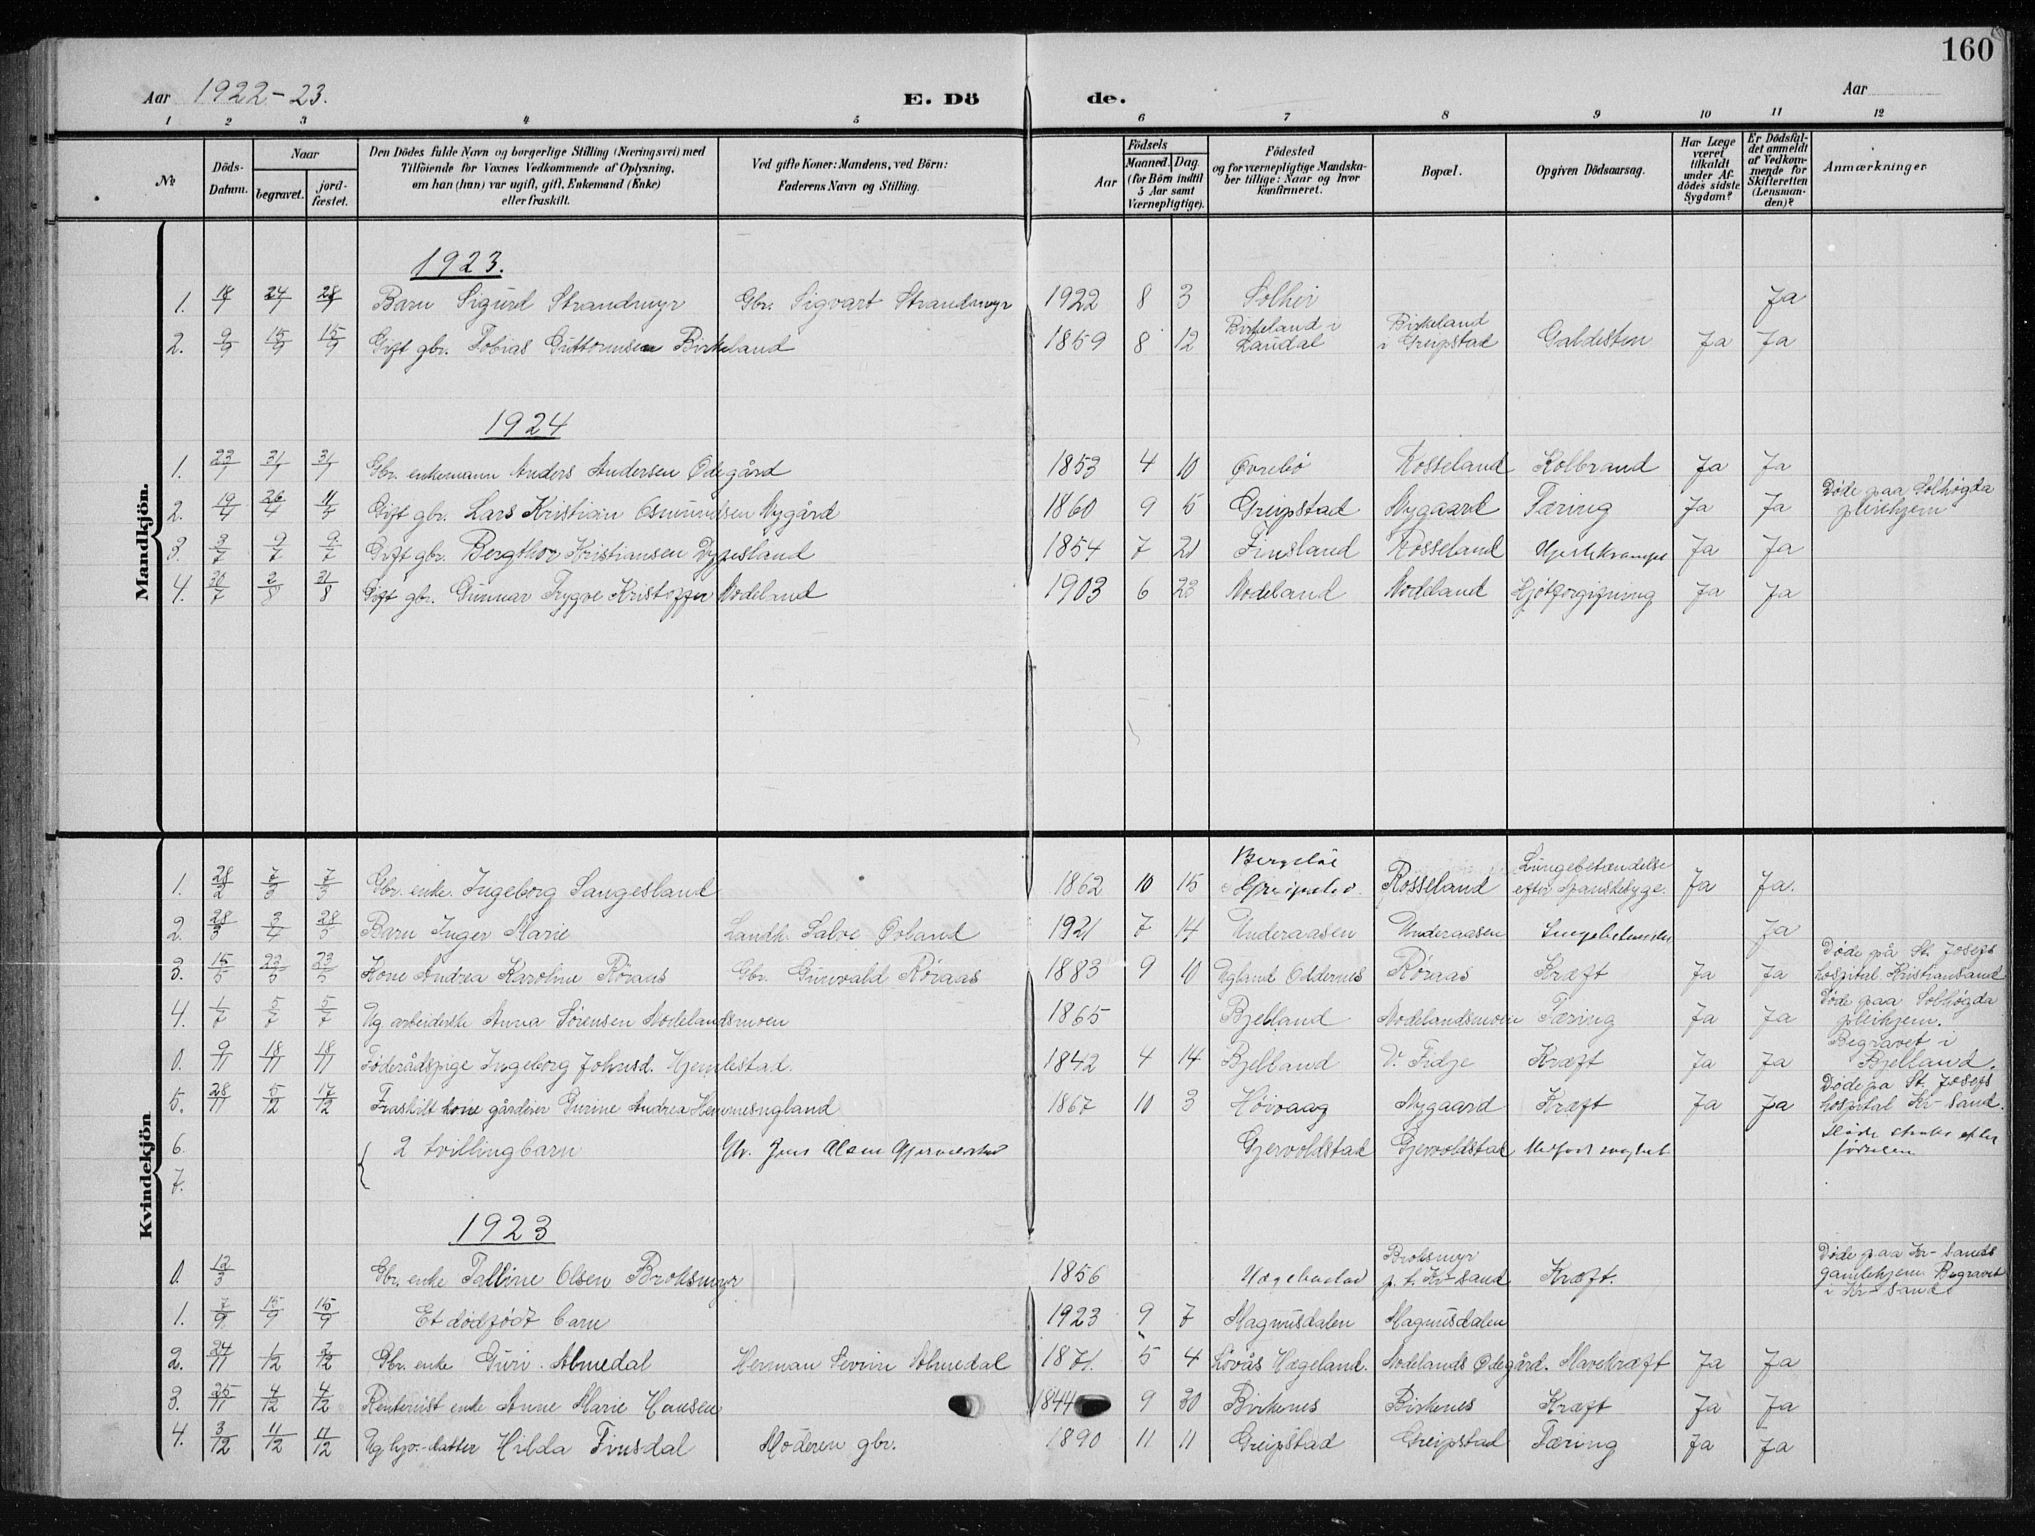 160
Aar 1922-23. E. Dö de. Aar
1 2 3 4 5 6 7 8 9 10 11 12
№ Döds-Datum. Naar begravet. jord-fæstet. Den Dödes fulde Navn og borgerlige Stilling (Næringsvei) med Tilföiende for Voxnes Vedkommende af Oplysning, om han (hun) var ugift, gift, Enkemand (Enke) eller fraskilt. Ved gifte Koner: Mandens, ved Börn: Faderens Navn og Stilling. Födsels Aar Maaned. Dag. (for Börn indtil 5 Aar samt Værnepligtige). Födested og for værnepligtige Mandskaber tillige: Naar og hvor konfirmeret. Bopæl. Opgiven Dödsaarsag. Har Læge været tilkaldt under Afdödes sidste Sygdom? Er Dödsfaldet anmeldt af Vedkommende for Skifteretten (Lensmanden)? Anmærkninger.
Mandkjön.
1923.
1. 18/7 24/7 28/7 Barn Sigurd Strandmyr Gbr. Sigvart Strandmyr 1922 8 3 Solhei Ja
2. 9/9 15/9 15/9 Gift gbr. Tobias Guttormsen Birkeland 1859 8 12 Birkeland i Laudal Birkeland i Greipstad Galdesten Ja Ja
1924
1. 23/1 31/1 31/1 Gbr. enkemann Anders Andersen Ødegård 1853 4 10 Øvrebø Rosseland Kolbrand Ja Ja
2. 19/4 26/4 11/5 Gift gbr. Lars Kristian Osmundsen Nygård 1860 9 5 Greipstad Nygaard Tæring Ja Ja Døde paa Solhøgda pleiehjem
3. 3/7 9/7 9/7 Gift gbr. Bergthor Kristiansen Dynesland 1854 7 21 Finsland Rosseland Hjertekrampe Ja Ja
4. 30/7 2/8 31/8 Gift gbr. Gunnar Trygve Kristoffer Nodeland 1903 6 23 Nodeland Nodeland Kjøtforgiftning Ja Ja
Kvindekjön
1. 28/2 7/3 7/3 Gbr. enke. Ingeborg Sangesland 1862 10 15 Rosseland Lungebetændelse efter Spanskesyge. Ja Ja.
2. 28/3 3/4 28/5 Barn Inger Marie Landh. Salve Øvland 1921 7 14 Underaasen Underaasen Lungebetændelse Ja
3. 15/5 23/5 23/5 Kone Andrea Karoline Røraas Gbr. Gunvald Røraas 1883 9 10 Ugland Oddernes Røraas Kræft Ja Ja Døde på St. Josefs hospital Kristiansand
4. 1/7 5/7 5/7 Ug arbeiderske Anna Sørensen Nodelandsmoen 1865 Bjelland Nodelandsmoen Tæring Ja Ja Døde paa Solhøgda pleiehjem.
0. 9/11 18/11 18/11 Føderådspige Ingeborg Johnsd. Hjemlestad. 1842 4 14 Bjelland V. Fidje Kræft Ja Ja Begravet i Bjelland.
5. 28/11 5/12 17/12 Fraskilt kone gårdeier Gurine Andrea Hemmesugland 1867 10 3 Høivaag Nygaard Kræft Ja Ja Døde pa St. Josefs hospital Kr-sand.
6. 2 tvillingbarn Gbr. Jens Gjervoldstad Gjervoldstad Medfødt svaghet Døde straks efter fødselen
7.
1923
0. 12/3 Gbr. enke Talline Olsen Broksmyr 1856 Hægeland Broksmyr p.t. Kr-sand Kræft. Døde paa Kr-sands gamlehjem Begravet i Kr-sand
1. 7/9 15/9 15/9 Et dødfødt barn 1923 9 7 Magnusdalen Magnusdalen
2. 24/11 1/12 2/12 Gbr. enke Guri. Almedal Herman Severin Almedal 1871. 5 4 Løvås Hægeland. Nodelands Ødegård. Mavekræft Ja Ja
3. 25/11 4/12 4/12 Rentenist enke Anne Marie Hansen 1844 9 30 Birkenes Birkenes Kræft Ja Ja
4. 3/12 11/12 11/12 Ug hjv. datter Hilda Finsdal Moderen gbr. 1890 11 11 Greipstad Greipstad Tæring Ja Ja